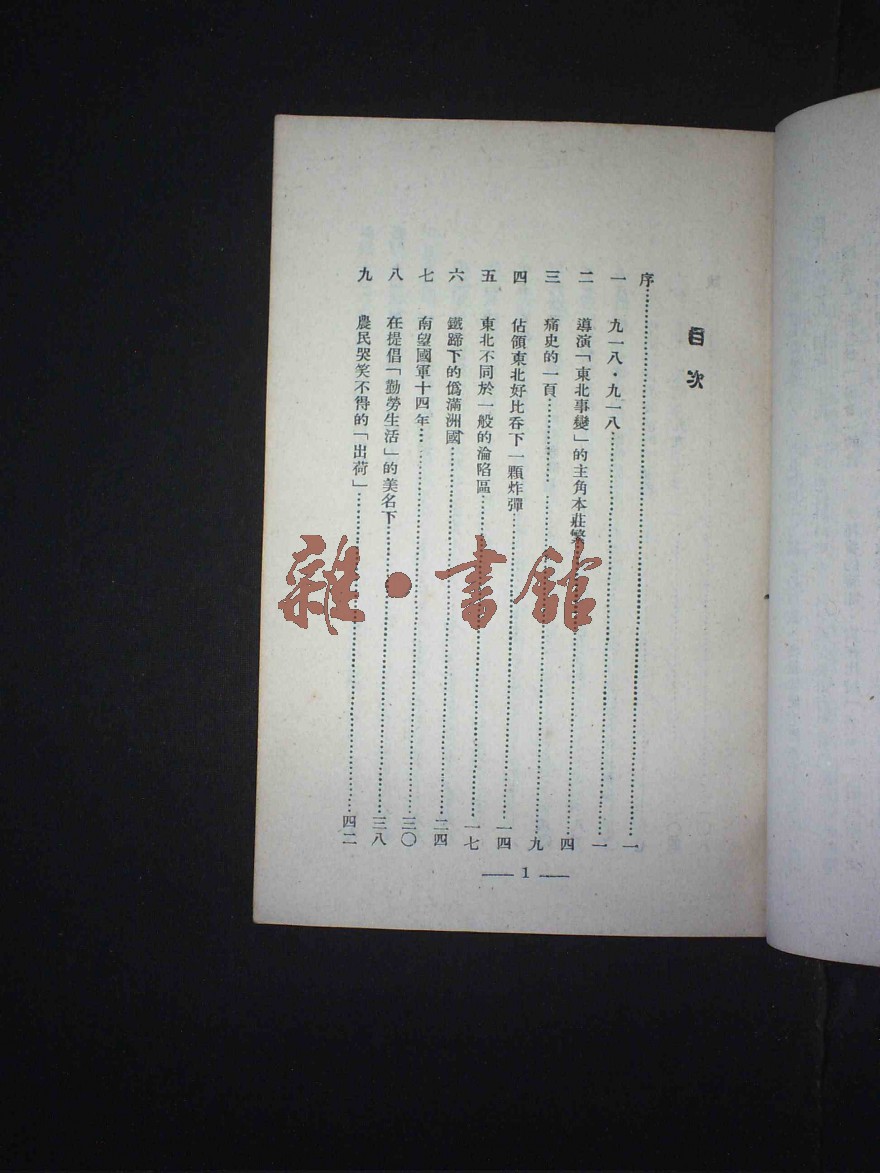 目次
序……一
一 九一八·九一八……一
二 導演「東北事變」的主角本莊繁……四
三 痛史的一頁……九
四 佔領東北好比吞下一顆炸彈……一四
五 東北不同於一般的淪陷區……一七
六 鐵蹄下的僞滿洲國……二四
七 南望國軍十四年……三〇
八 在提倡「勤勞生活」的美名下……三八
九 農民哭笑不得的「出荷」……四二
— 1 —
雜·書館